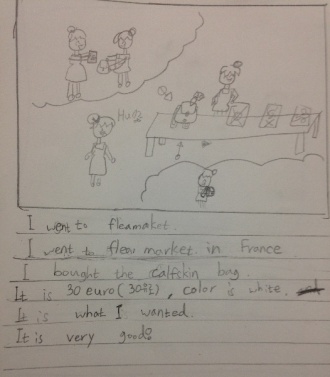 Hua
I went to fleamaket.
I went to flear market in France
I bought the calfskin bag.
It is 30 euro(30유로), color is white.
It is what I wanted.
It is very good.